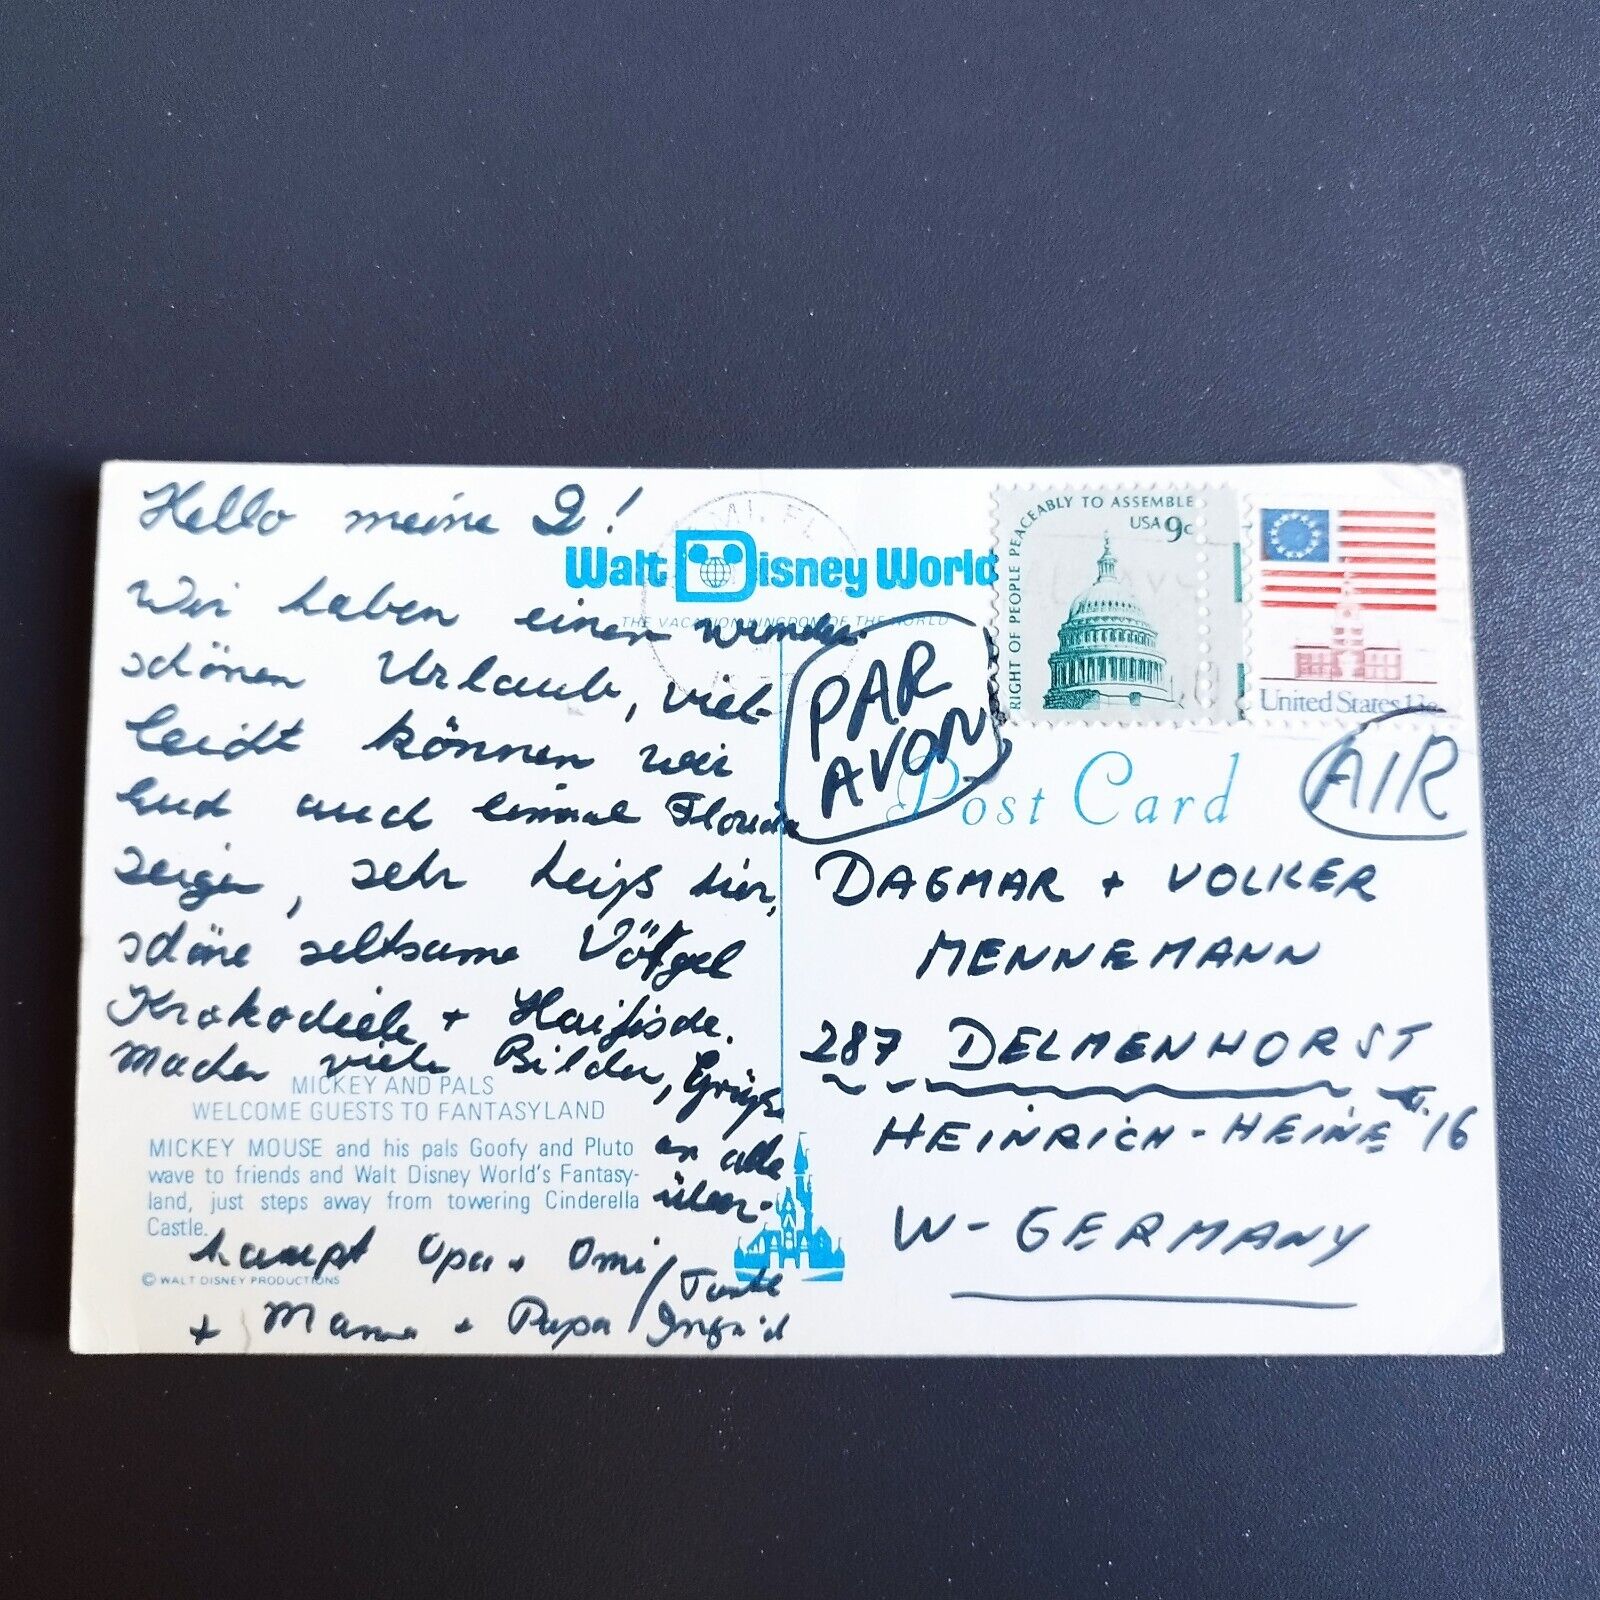 Hello meine 2!
Wir haben einen wunder-
schönen Urlaub, viel-
leicht können wir
Euch auch einmal Florida
zeigen, sehr heiß hier,
schöne seltsame Vögel
Krokodiele + Haifische.
Machen viele Bilder, Grüße
an alle
über-
haupt Opa + Omi / Tante
+ Mama + Papa / Ingrid
Walt Disney World
THE VACATION KINGDOM OF THE WORLD
MICKEY AND PALS
WELCOME GUESTS TO FANTASYLAND
MICKEY MOUSE and his pals Goofy and Pluto
wave to friends and Walt Disney World's Fantasy-
land, just steps away from towering Cinderella
Castle.
© WALT DISNEY PRODUCTIONS
RIGHT OF PEOPLE PEACEABLY TO ASSEMBLE
USA 9c
United States 13c
PAR
AVON
Post Card
AIR
DAGMAR + VOLKER
MENNEMANN
287 DELMENHORST
HEINRICH-HEINE Str. 16
W-GERMANY